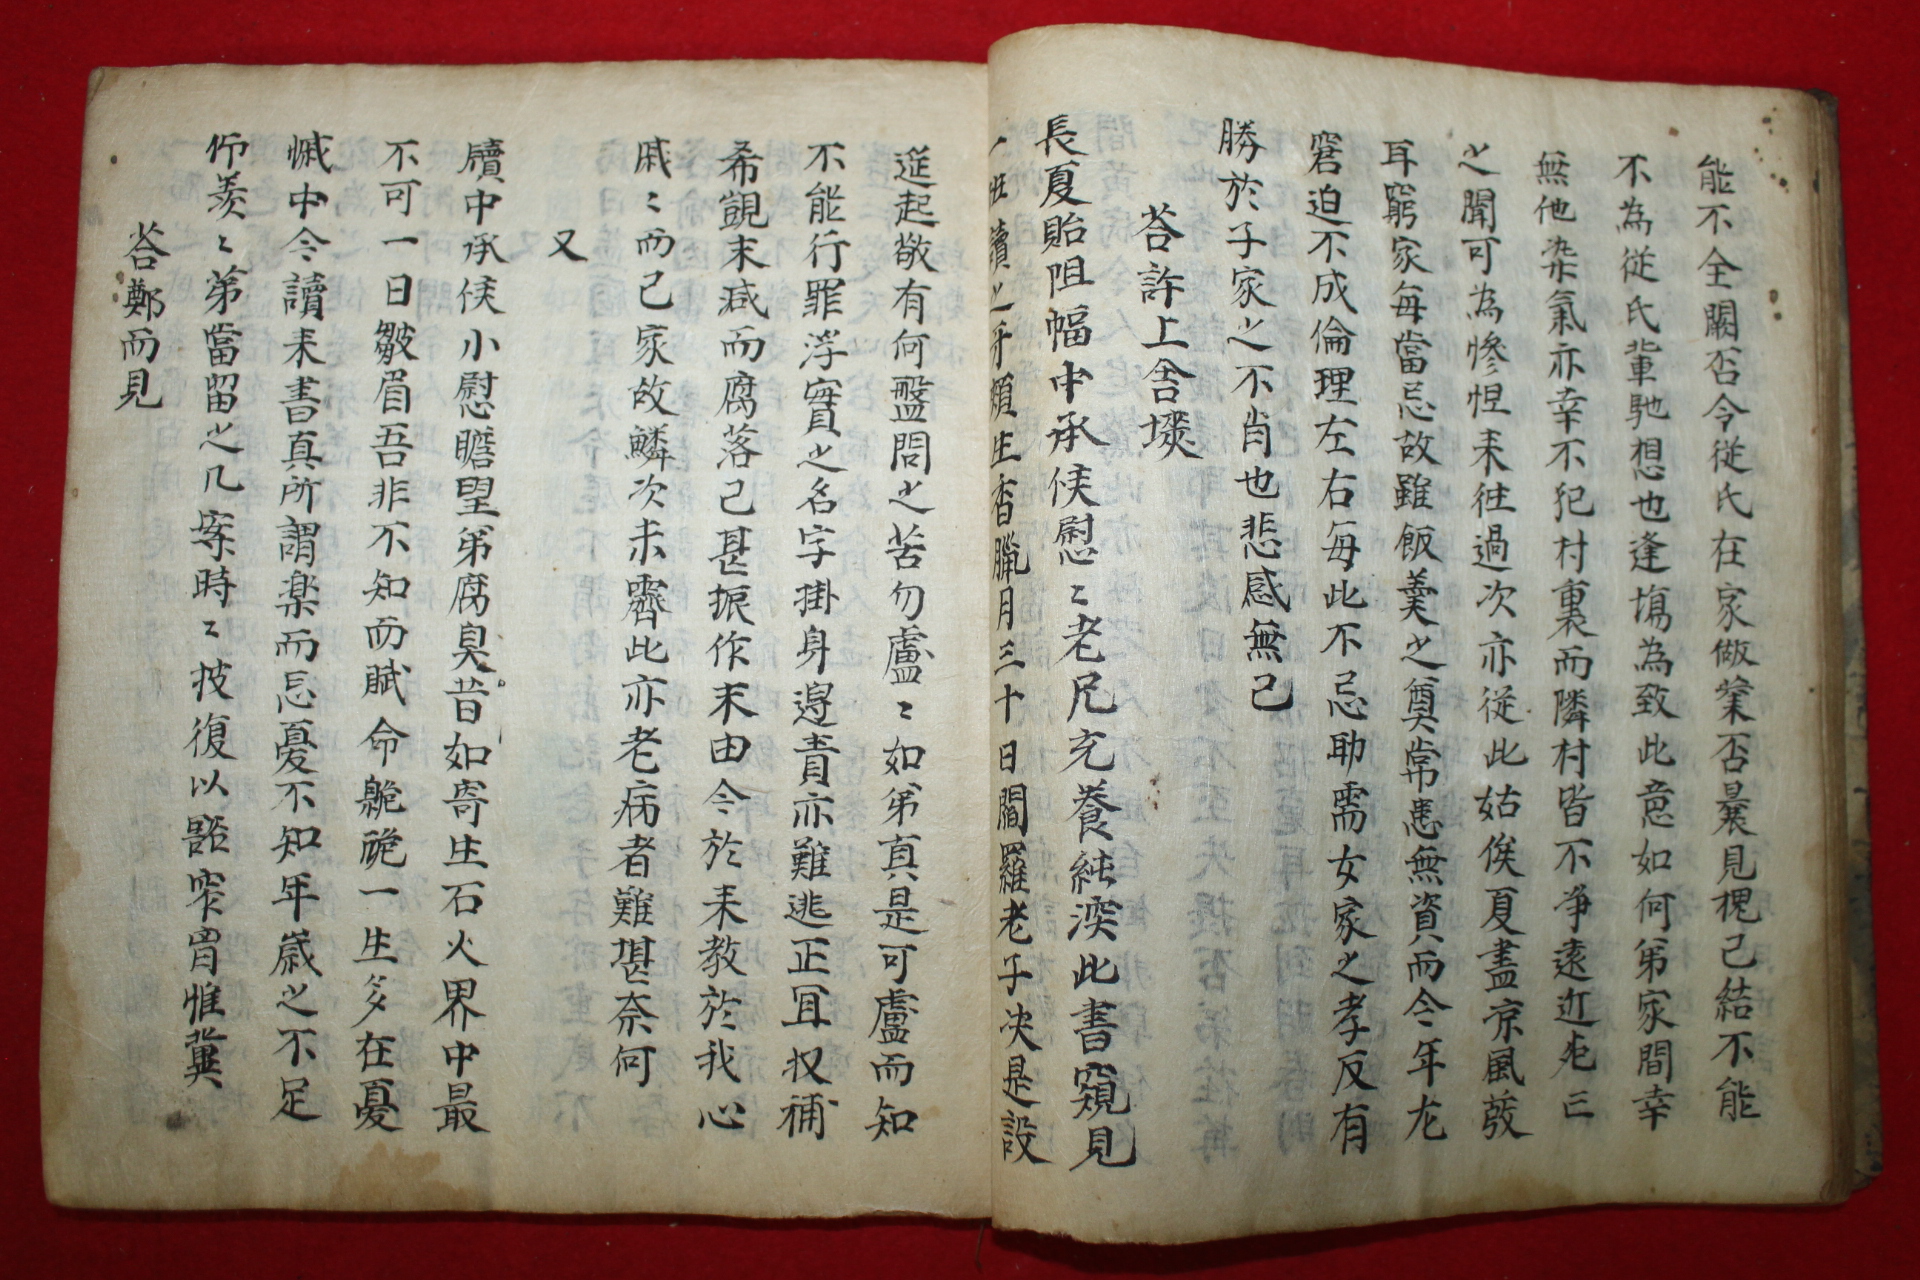 能不全闕否今従氏在家做業否曩見槐已結不能
不為従氏軰馳想也逢塲為致此意如何弟家間幸
無他染氣亦幸不犯村裏而隣村皆不净遠近死亡
之聞可為慘怛来徃過次亦従此姑俟夏盡凉風發
耳窮家每當忌故雖飯羹之奠常患無資而今年尤
窘迫不成倫理左右每此不忌助需女家之孝反有
勝於子家之不肖也悲感無已
荅許上舍墣
長夏貽阻幅中承候慰〻老兄充養純深此書窺見
一班讀之牙頰生香臘月三十日閻羅老子决是設
筵起敬有何盤問之苦勿慮〻如弟真是可慮而知
不能行罪浮實之名字掛身邉責亦難逃正冝収補
希覬末减而腐落已甚振作末由今於来教於我心
戚〻而已家故鱗次未霽此亦老病者難堪奈何
又
牘中承候小慰瞻望弟腐臭昔如寄生石火界中最
不可一日皺眉吾非不知而賦命脆硊一生多在憂
慽中今讀来書真所謂楽而忘憂不知年歲之不足
仰羡〻弟當留之几案時〻披復以豁窄胷惟冀
荅鄭而見